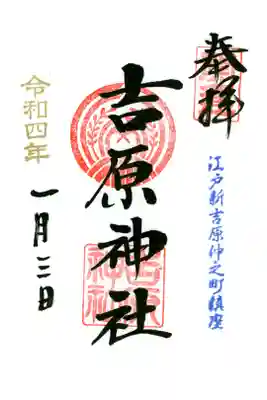 奉拝
江戸新吉原仲之町鎮座
吉原神社
令和四年
一月三日